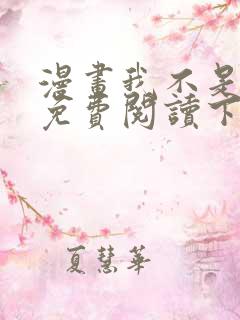 漫畫我不是
免費閱讀下
夏慧華